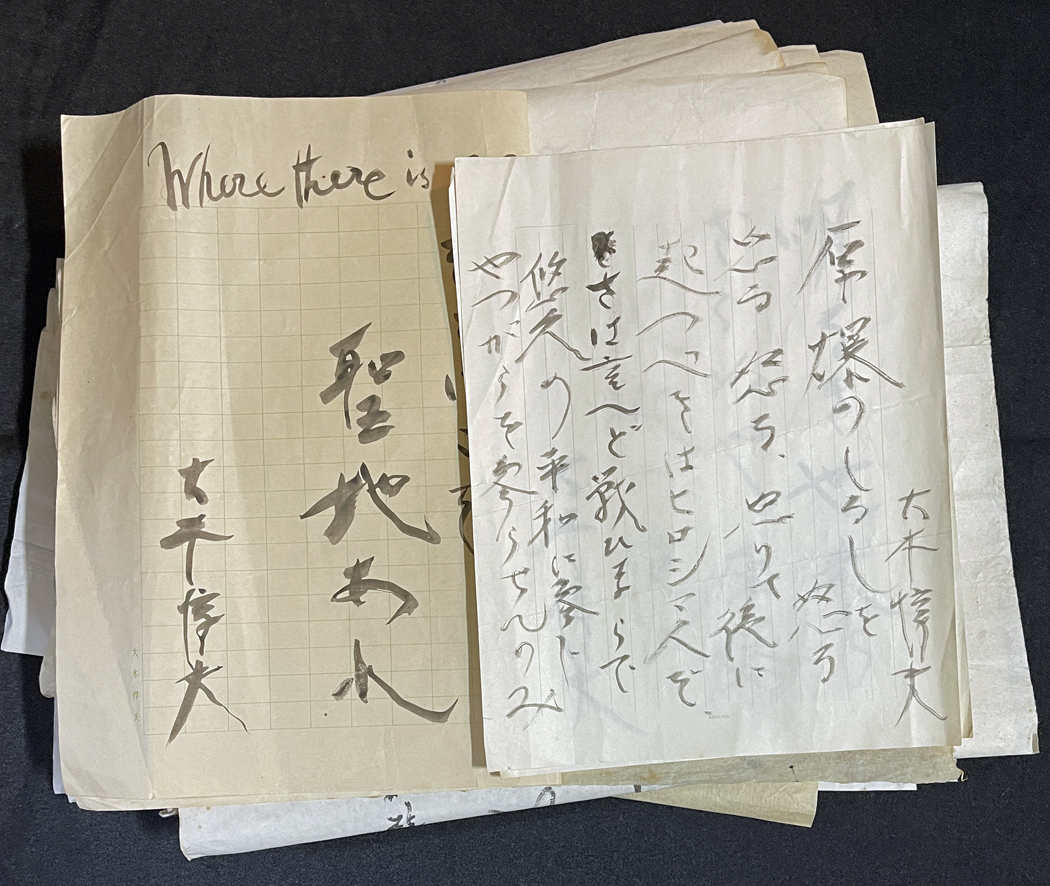 Where there is
聖地あれ
大木惇夫
大木惇夫
大木惇夫
原爆のしるしを 怒る
後に
起つべきはヒロシマ人ぞ
さは言へど戦ひならで
悠久の平和に
やつがらを参らせんのみ